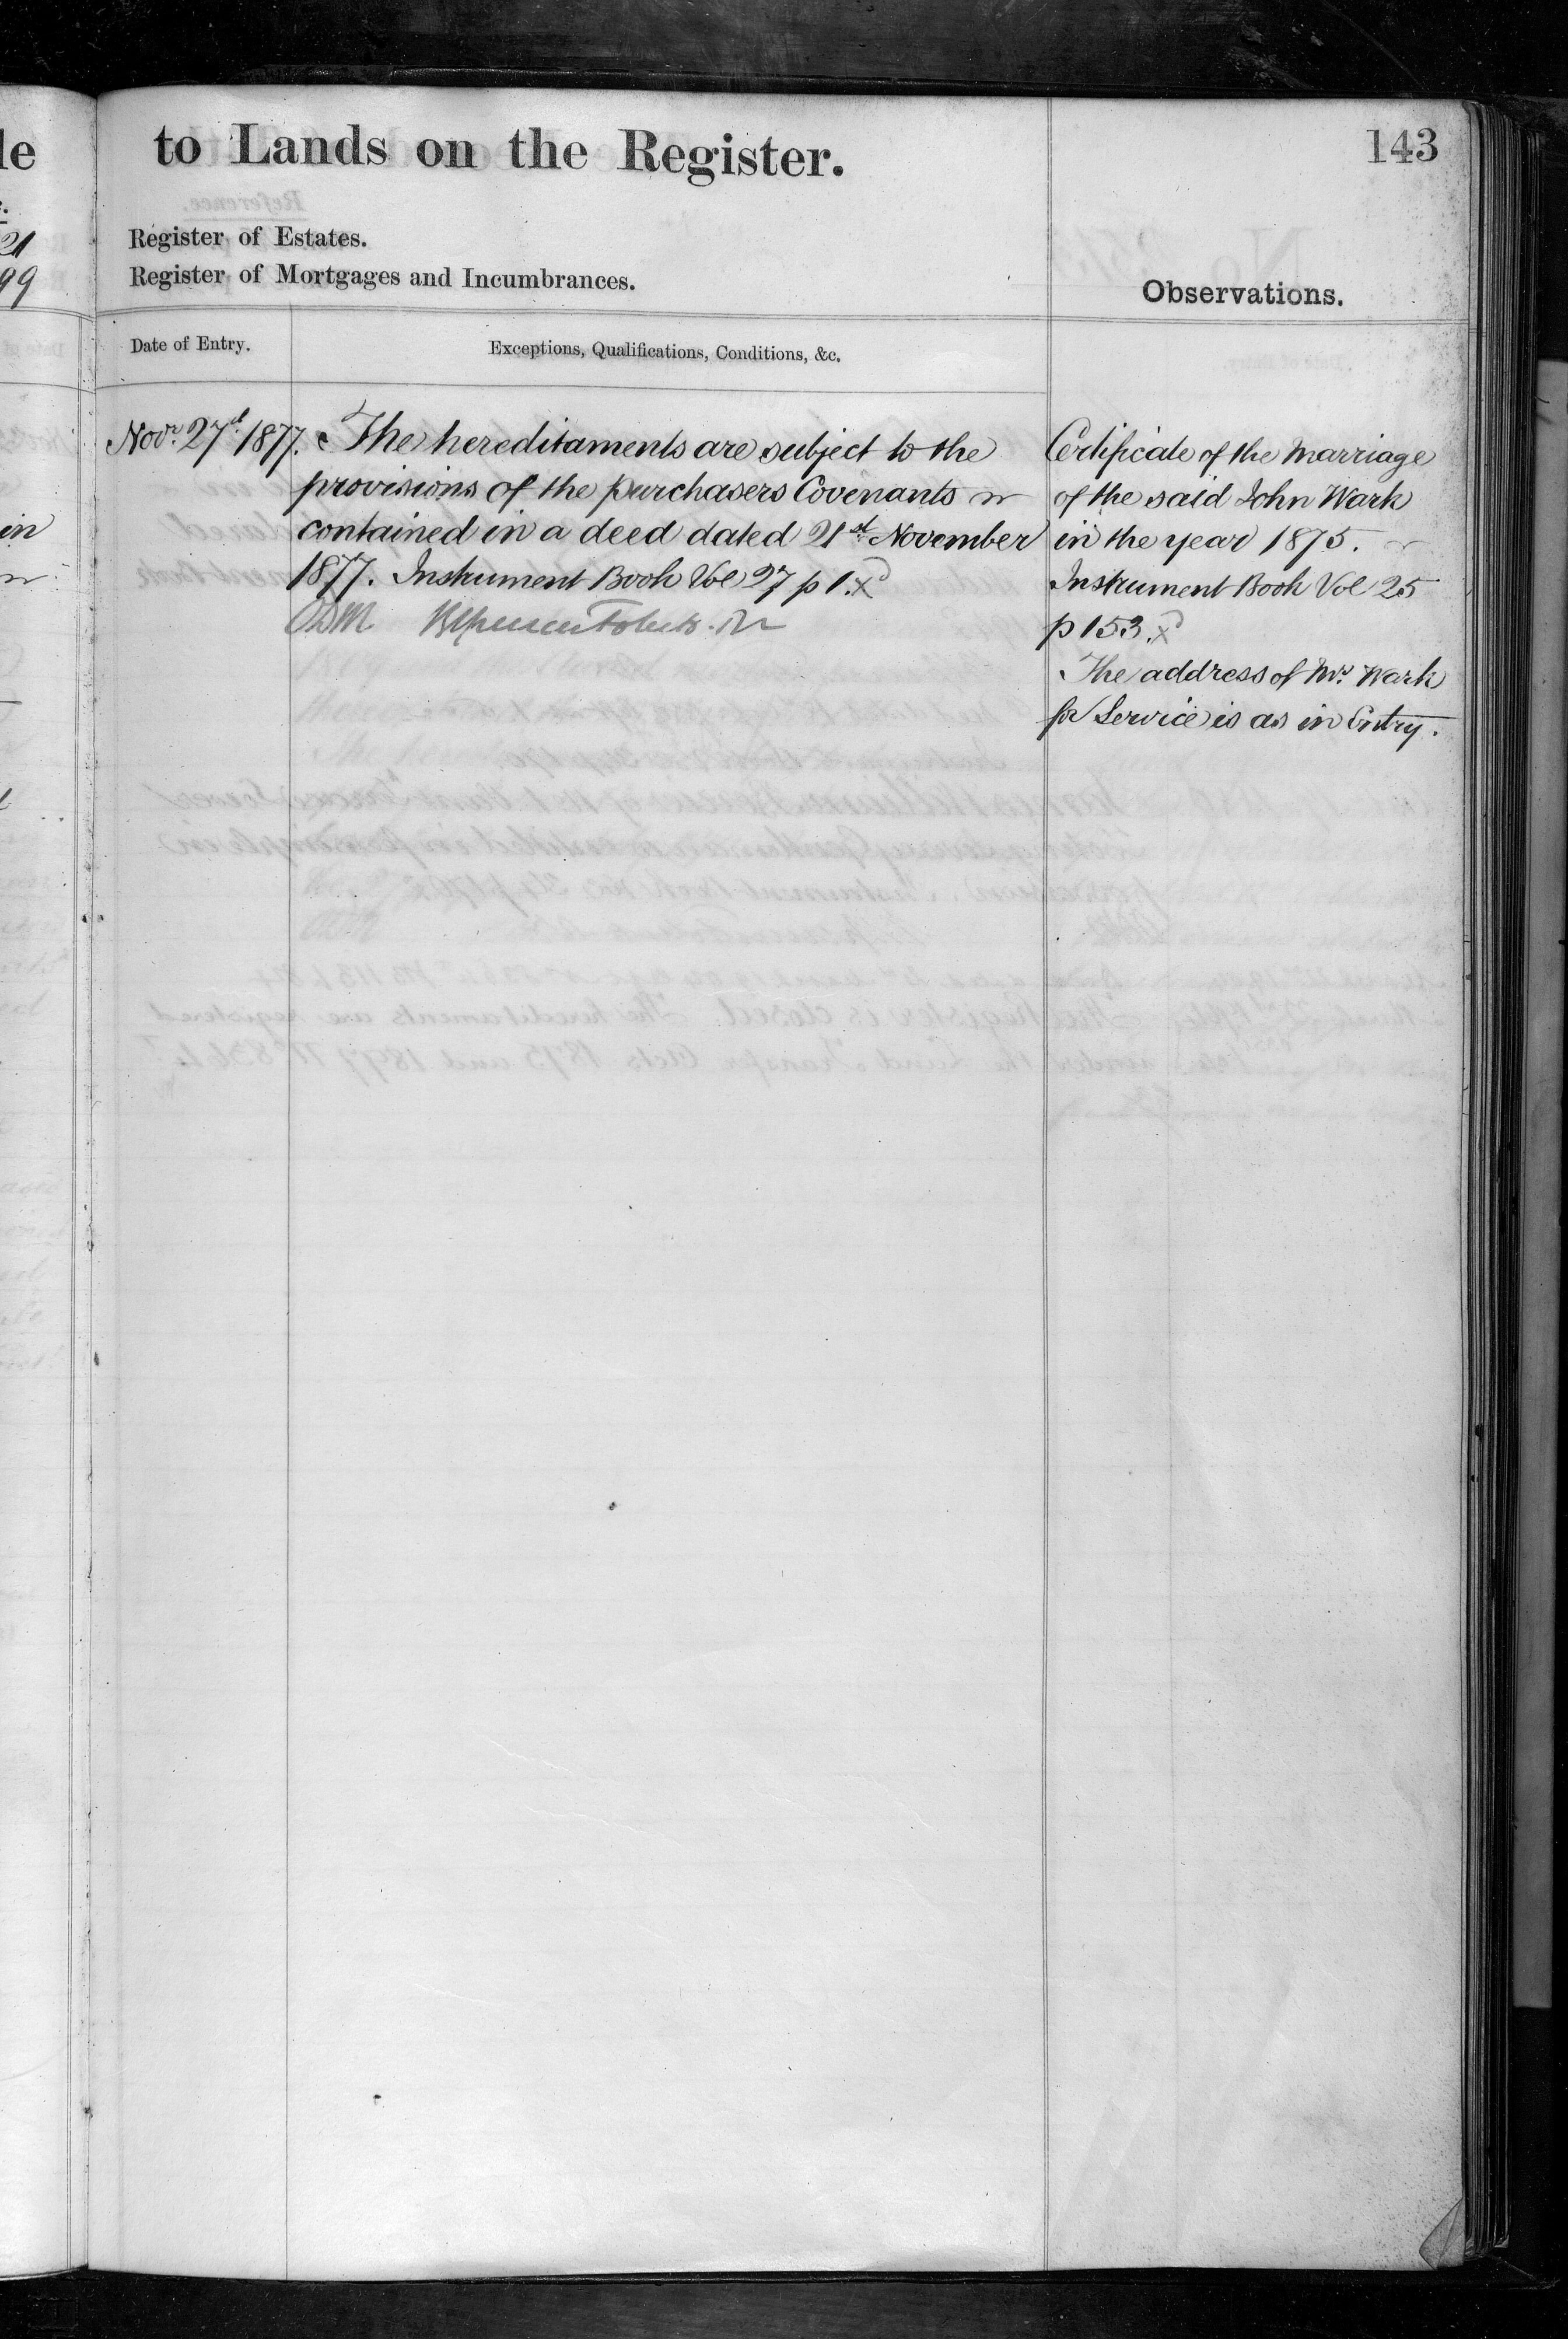 to Lands on the Register.
143
Register of Estates.
Register of Mortgages and Incumbrances.
Observations.
Date of Entry.
Exceptions, Qualifications, Conditions, &c.
Novr. 27d. 1877.
The hereditaments are subject to the
provisions of the purchasers Covenants
contained in a deed dated 21st November
1877. Instrument Book Vol 27 p 1.
Certificate of the Marriage
of the said John Wark
in the year 1875.
Instrument Book Vol 25
p 153.
The address of Mr. Wark
for Service is as in Entry.
le
21
99
in